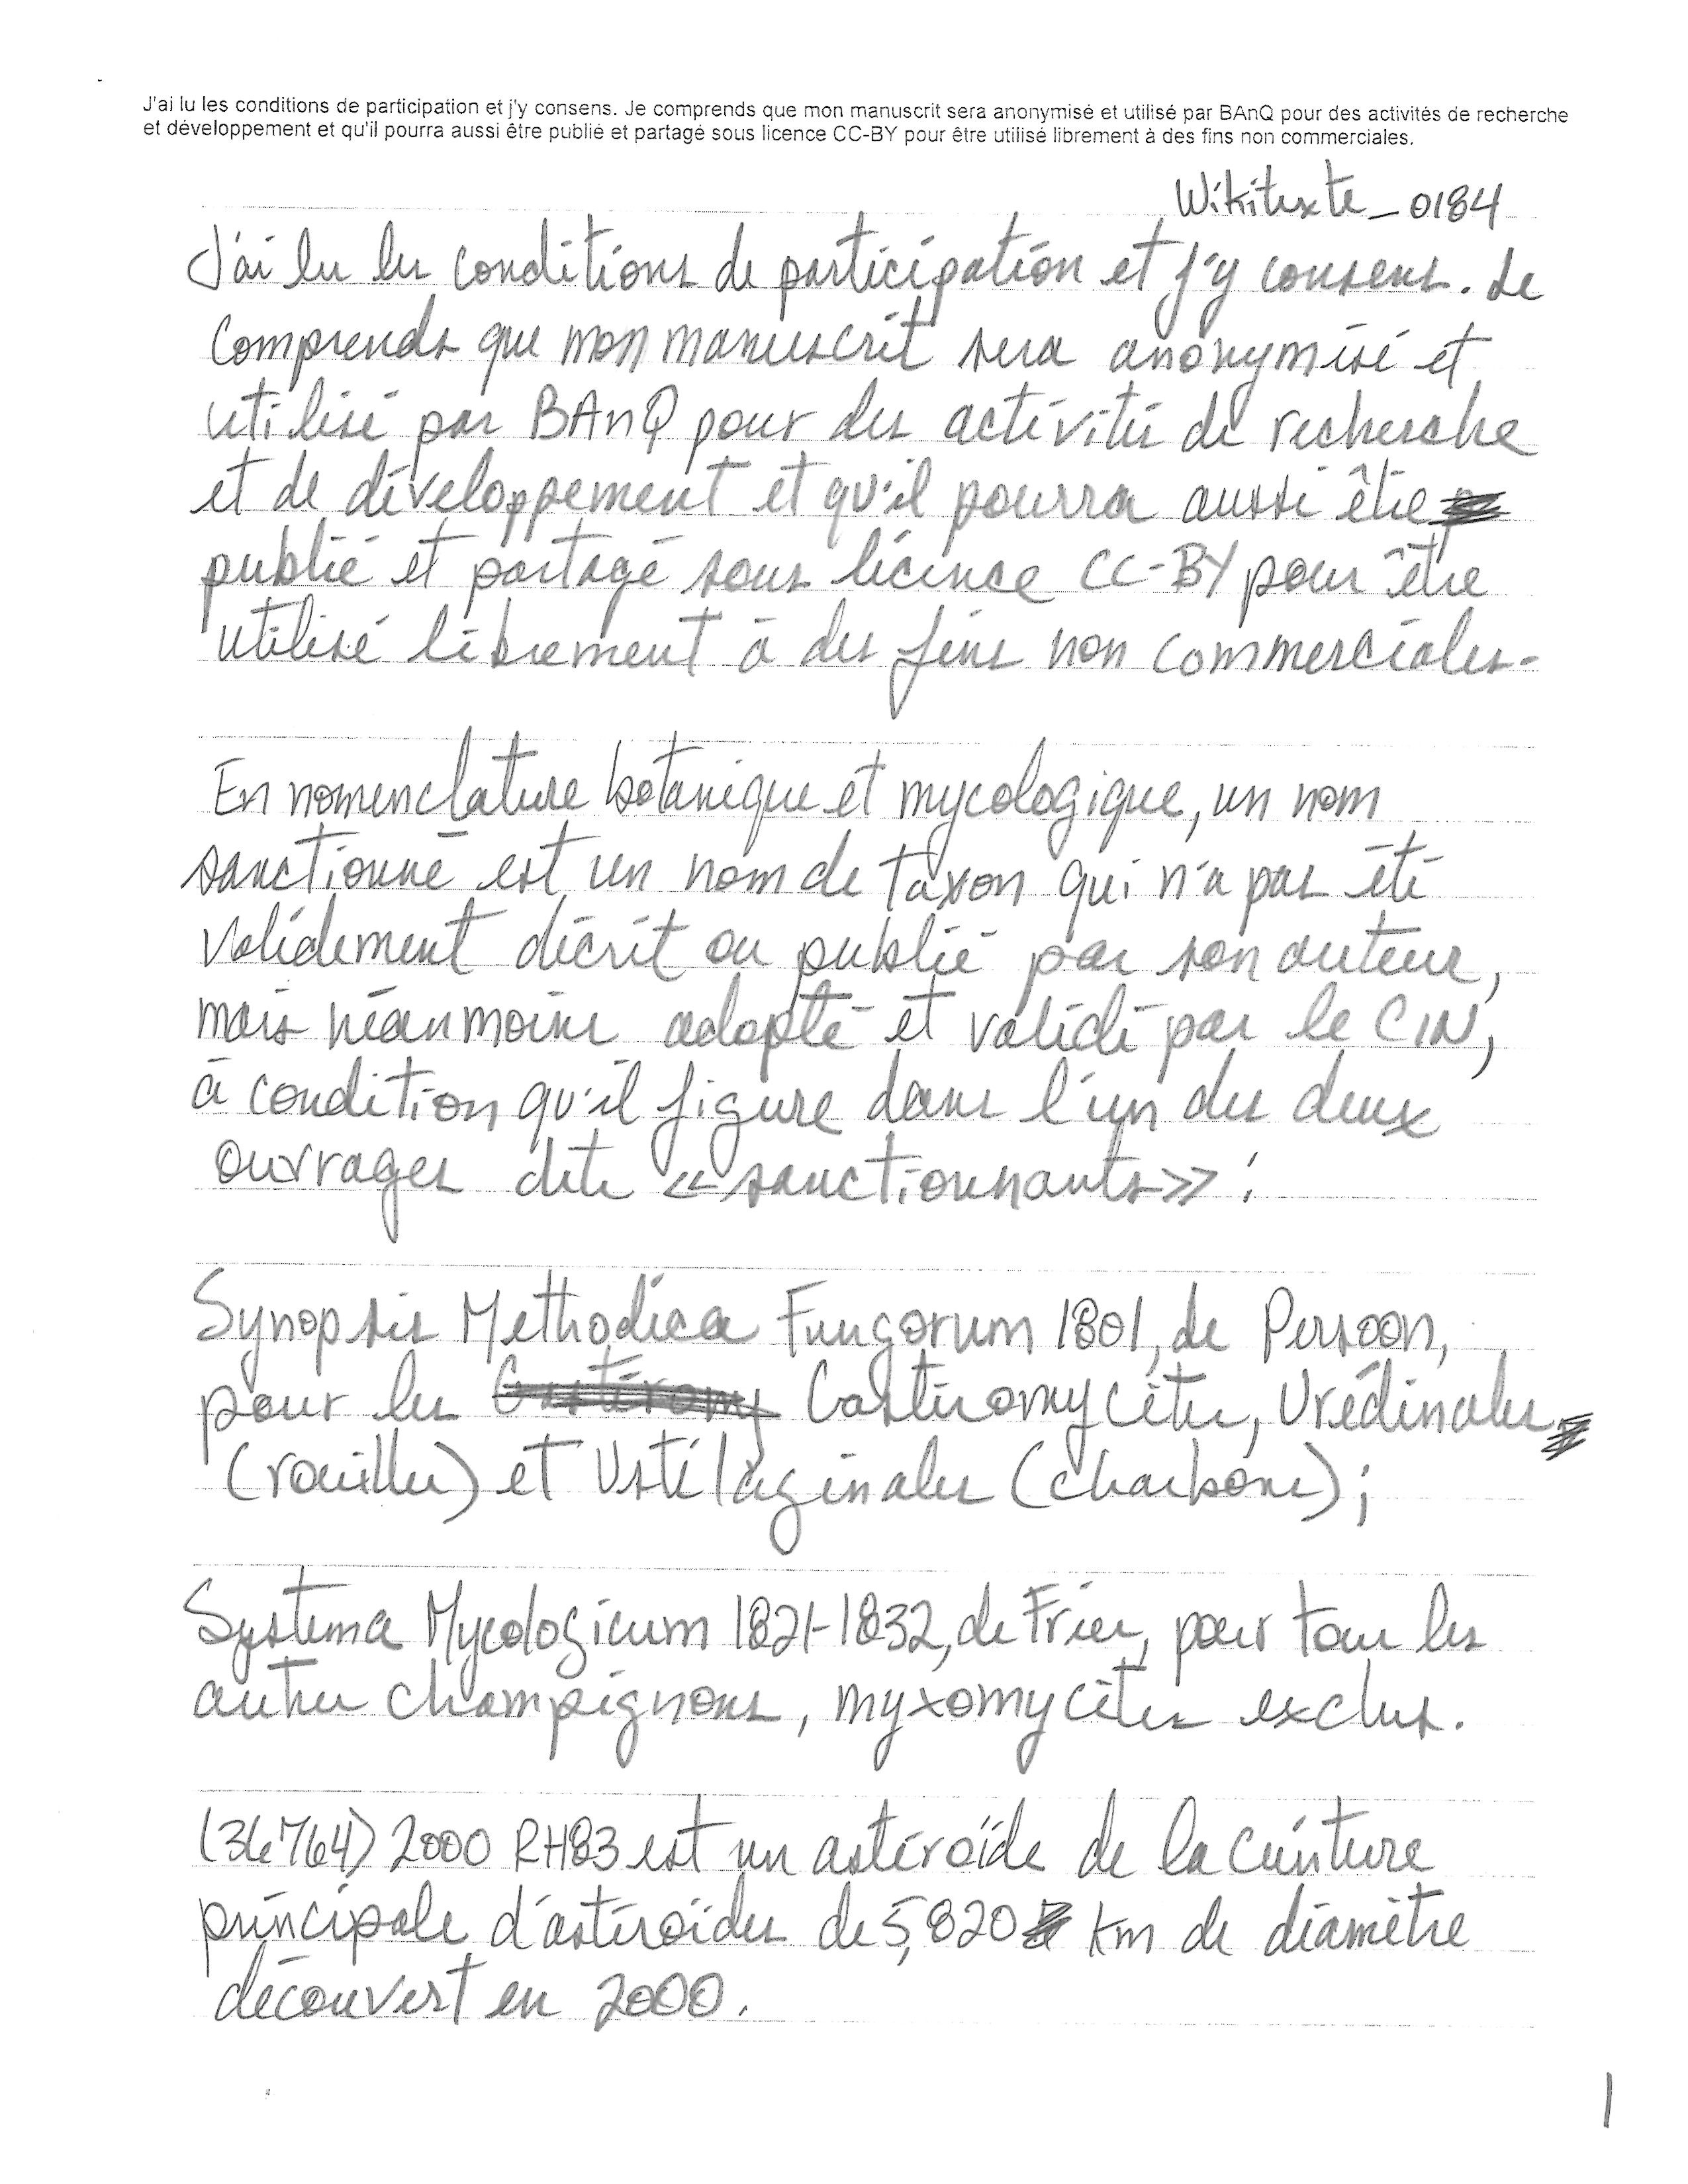 J'ai lu les conditions de participation et j'y consens. Je comprends que mon manuscrit sera anonymisé et utilisé par BAnQ pour des activités de recherche
et développement et qu'il pourra aussi être publié et partagé sous licence CC-BY pour être utilisé librement à des fins non commerciales.
Wikitexte_0184
J'ai lu les conditions de participation et j'y consens. Je
comprends que mon manuscrit sera anonymisé et
utilisé par BAnQ pour des activités de recherche
et de développement et qu'il pourra aussi être
publié et partagé sous licence CC-BY pour être
utilisé librement à des fins non commerciales.
En nomenclature botanique et mycologique, un nom
sanctionné est un nom de taxon qui n'a pas été
validement décrit ou publié par son auteur,
mais néanmoins adopté et validé par le CIN,
à condition qu'il figure dans l'un des deux
ouvrages dits «sanctionnants» :
Synopsis Methodica Fungorum 1801, de Persoon,
pour les Gastéromy Gastéromycètes, Urédinales
(rouilles) et Ustilaginales (charbons);
Systema Mycologicum 1821-1832, de Fries, pour tous les
autres champignons, myxomycètes exclus.
(36764) 2000 RH83 est un astéroïde de la ceinture
principale d'astéroïdes de 5,820 km de diamètre
découvert en 2000.
1